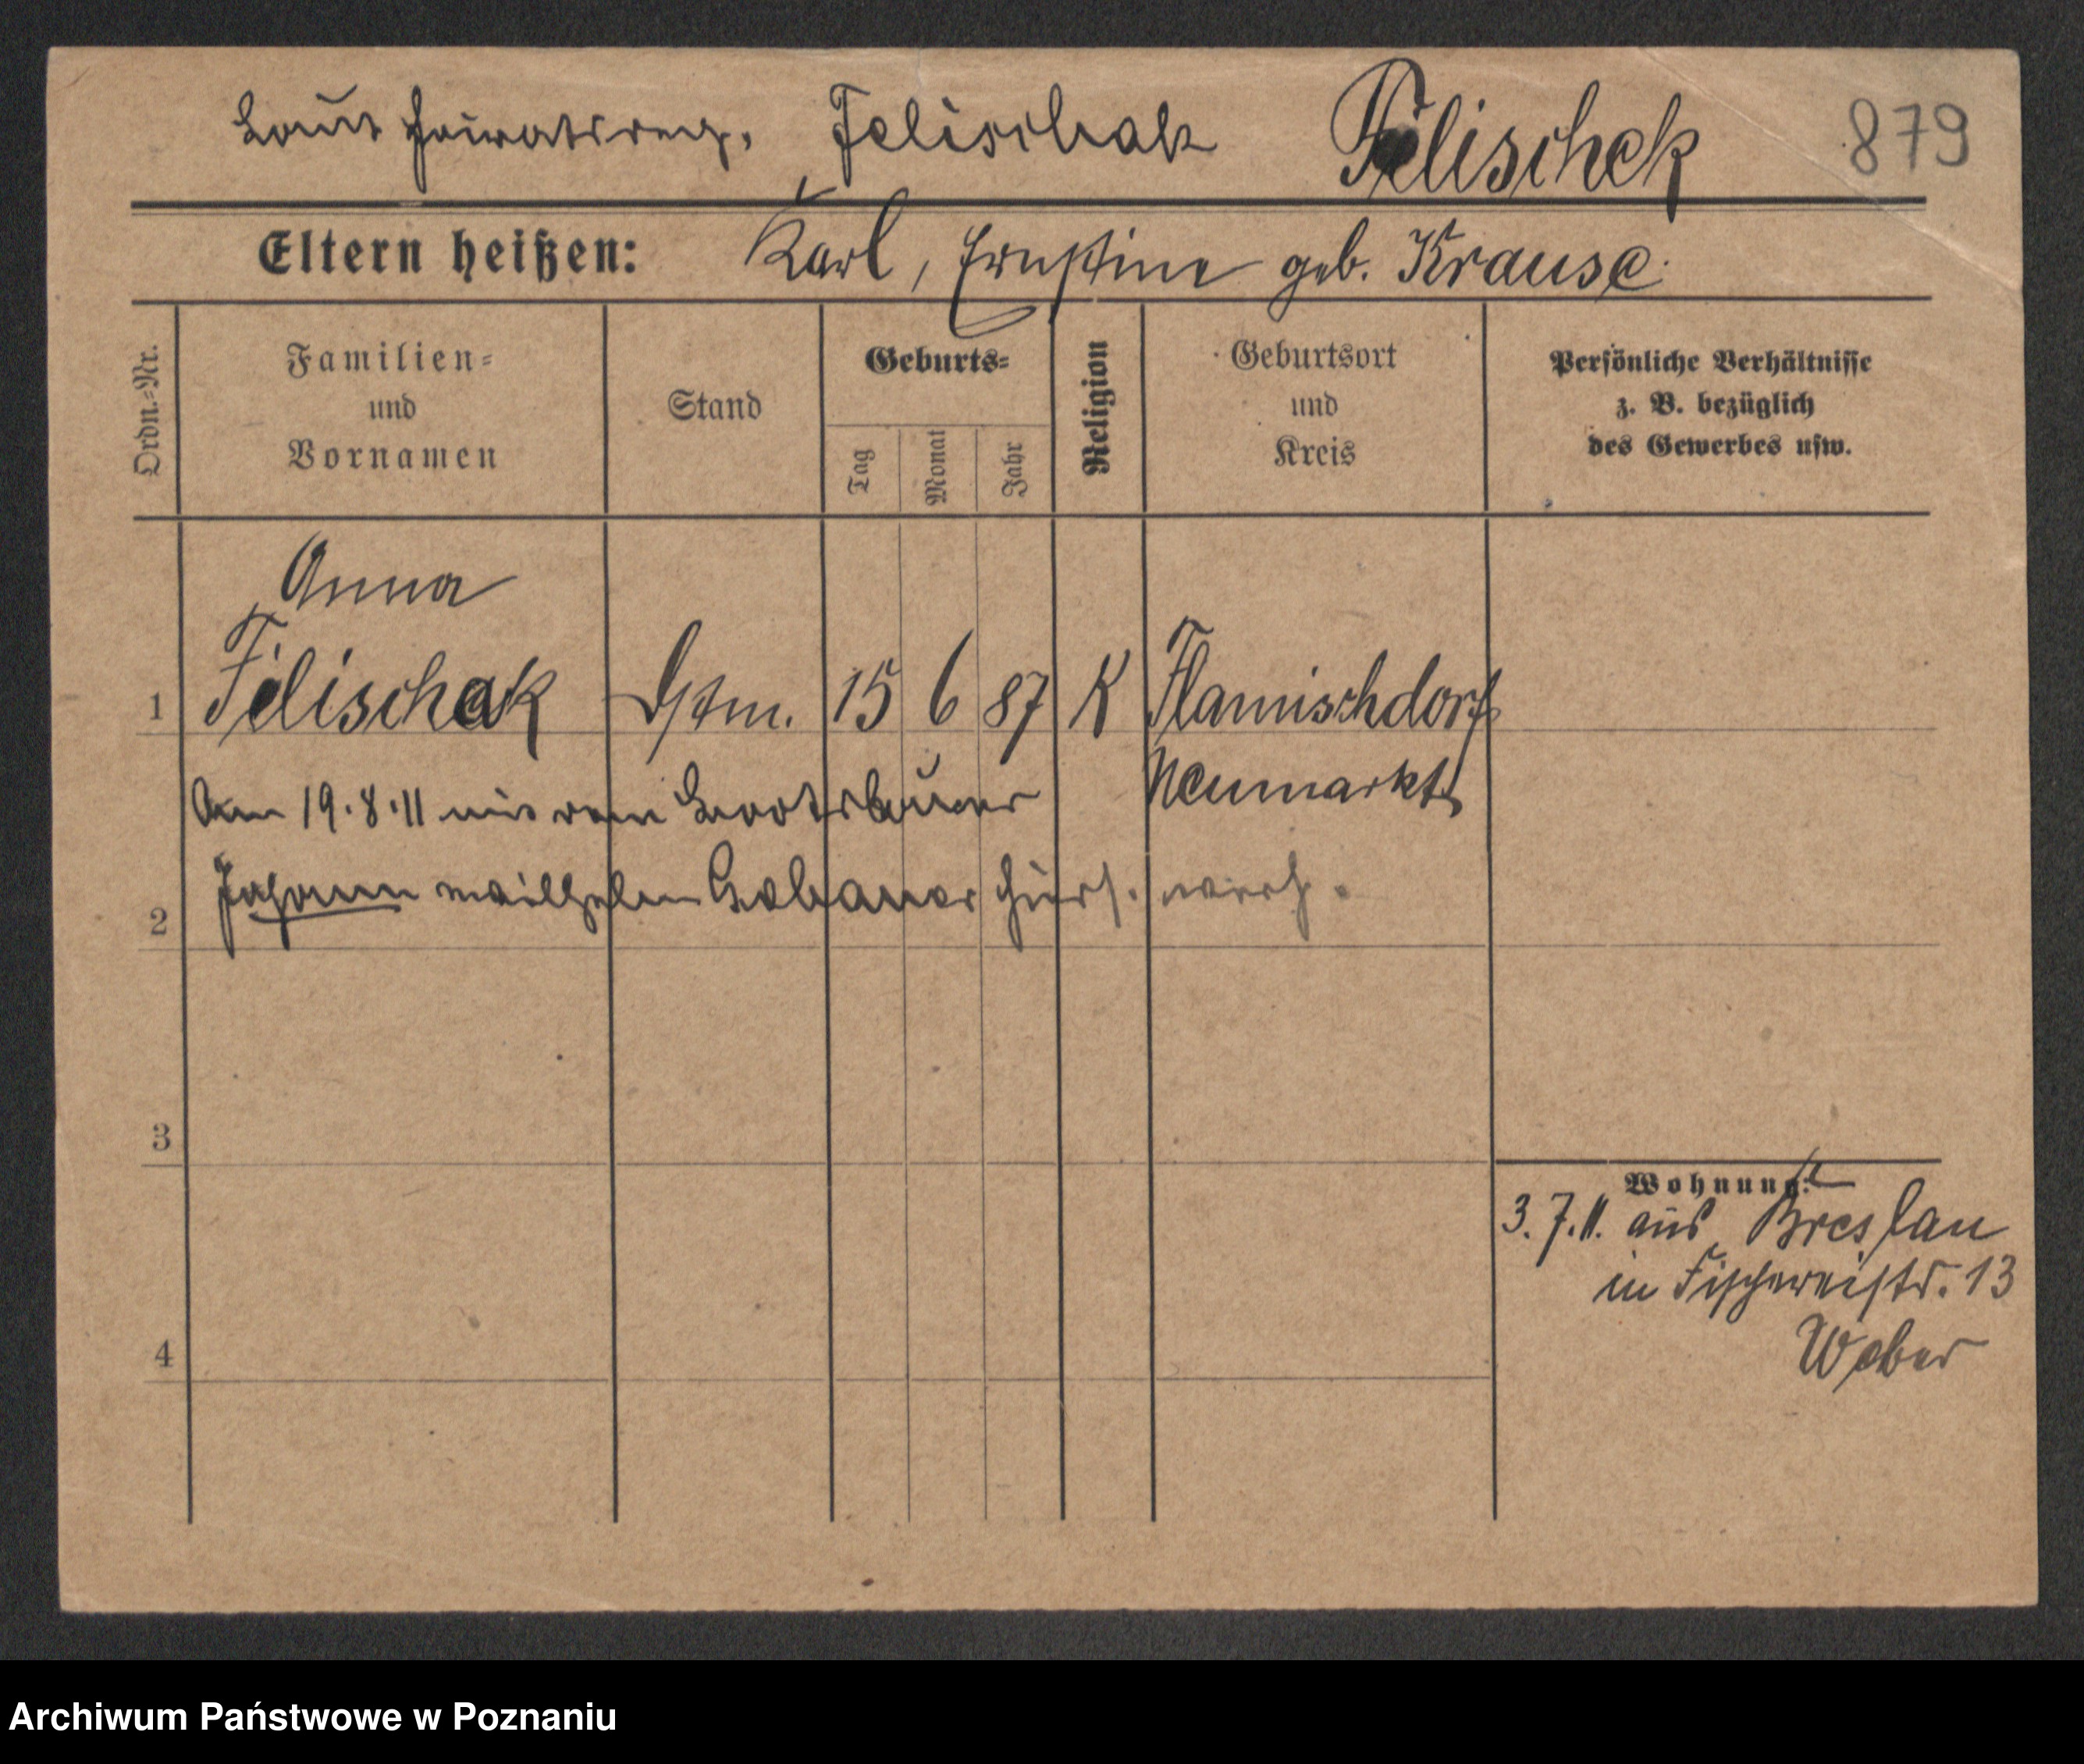 Laut Heiratsreg. Felischak Felischek 879
Eltern heißen: Karl, Ernstine geb. Krause.
Ordn.-Nr. Familien- und Vornamen Stand Geburts- Tag Monat Jahr Religion Geburtsort und Kreis Persönliche Verhältnisse z. B. bezüglich des Gewerbes usw.
Anna
1 Felischak 15 6 87 K Flämischdorf
Neumarkt
Am 19.8.11 mit dem Bootsbauer
2 Johann Wilhelm hier verh.
3
Wohnung:
3.7.11. aus Breslau
in Fischereistr. 13
Weber
4
Archiwum Państwowe w Poznaniu